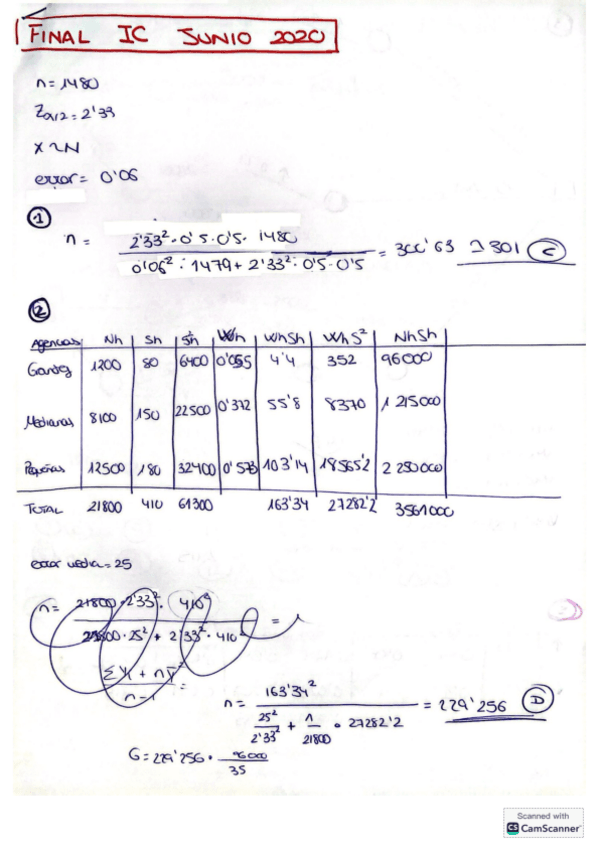 FINAL IC JUNIO 2020
n = 1480
Zα/2 = 2'33
X ~ N
error = 0'06
①
n = 2'33² · 0'5 · 0'5 · 1480 / 0'06² · 1479 + 2'33² · 0'5 · 0'5 = 300'63 ⇒ 301 C
②
Agencias Nh Sh S²h Wh WhSh WhS² NhSh
Grandes 1200 80 6400 0'055 4'4 352 96000
Medianas 8100 150 22500 0'372 55'8 8370 1 215000
Pequeñas 12500 180 32400 0'573 103'14 18565'2 2 250000
TOTAL 21800 410 61300 163'34 27282'2 3561000
error media = 25
n = 21800 · 2'33² · 410² / 21800 · 25² + 2'33² · 410² =
n - 1 =
n = 163'34² / 25² / 2'33² + 1 / 21800 · 27282'2 = 229'256 D
G = 229'256 · 96000 / 35
Scanned with
CS CamScanner